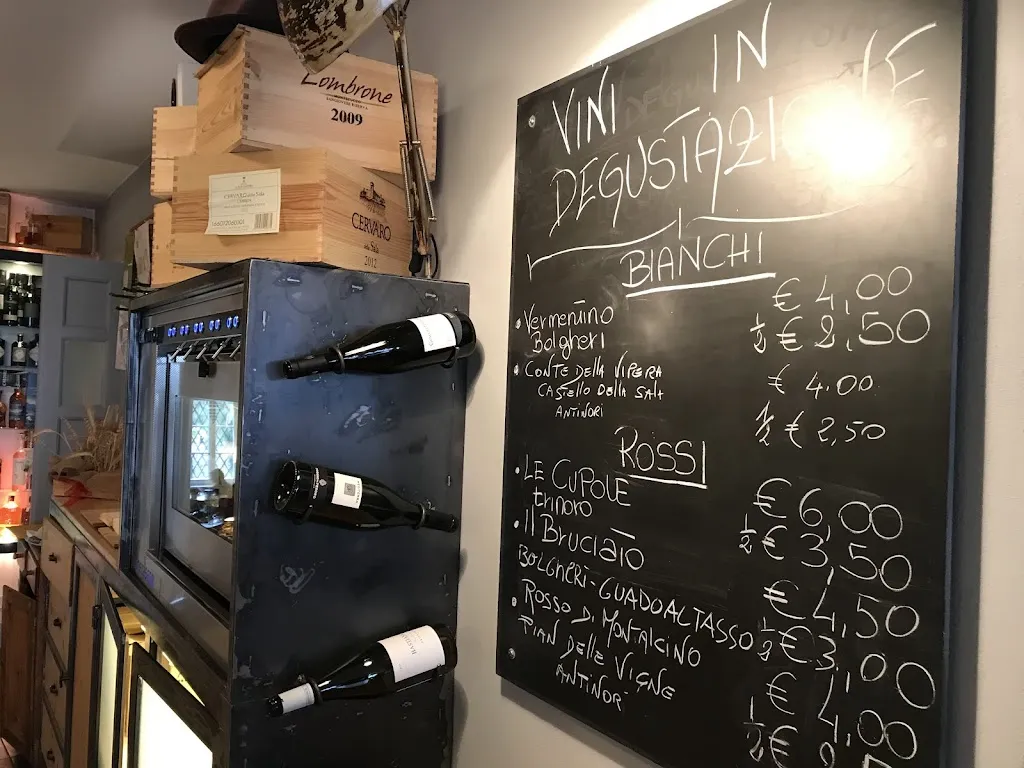 Lombrone
2009
CERVARO
della Sala
2012
VINI IN
DEGUSTAZIONE
BIANCHI
• Vermentino € 4,00
Bolgheri ½ € 2,50
• CONTE DELLA VIPERA € 4.00
CASTELLO DELLA SALA
ANTINORI ½ € 2,50
ROSSI
• LE CUPOLE € 6,00
trinoro ½ € 3,50
• Il Bruciato € 4,50
BOLGHERI-GUADOALTASSO ½ € 3,00
• ROSSO DI MONTALCINO € 4,00
PIAN DELLE VIGNE ½ €
ANTINORI